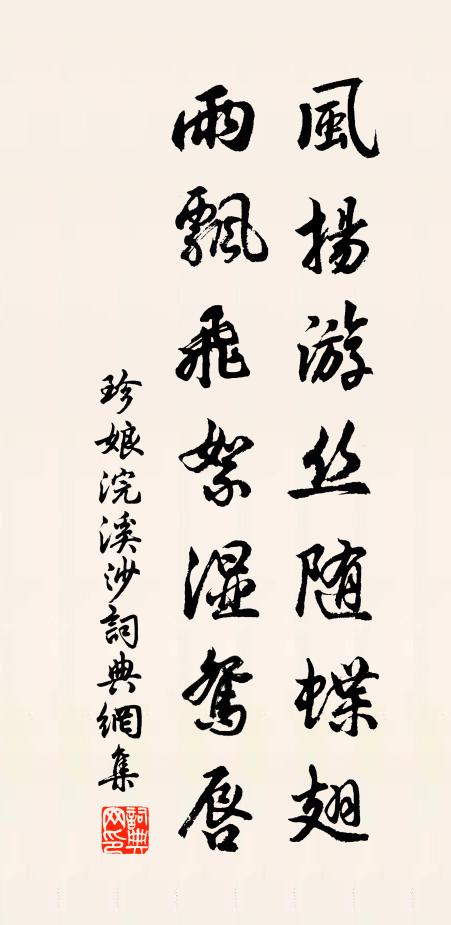 風揚游丝随蝶翅
雨飄飛絮濕鶯唇
珍娘浣溪沙詞典網集
詞典网印